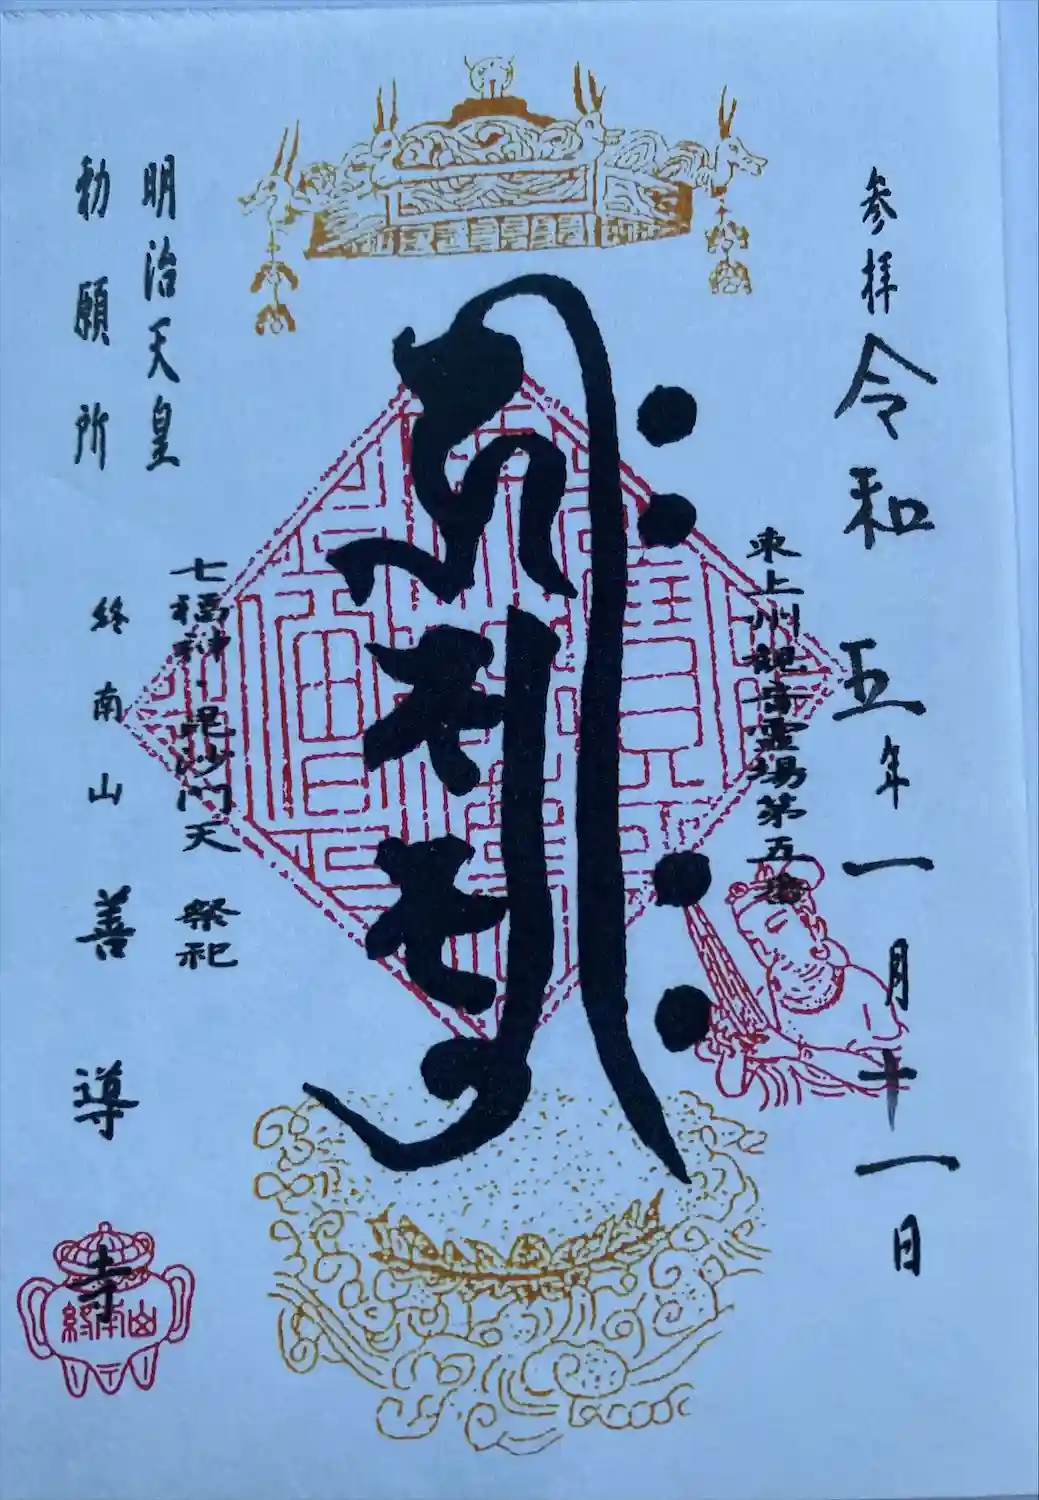 参拝 令和五年一月十一日
東上州観音霊場第五番
ह्रीः
七福神・毘沙門天 祭祀
明治天皇
勅願所
終南山 善導寺
終南山